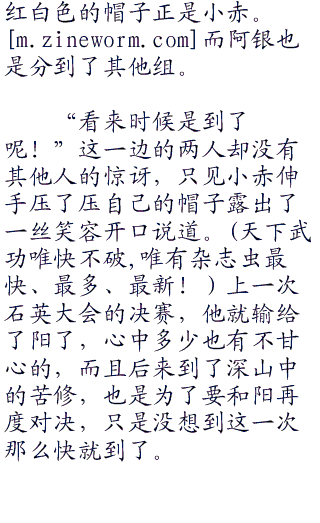 红白色的帽子正是小赤。
[m.zineworm.com]而阿银也
是分到了其他组。
“看来时候是到了
呢！”这一边的两人却没有
其他人的惊讶，只见小赤伸
手压了压自己的帽子露出了
一丝笑容开口说道。(天下武
功唯快不破,唯有杂志虫最
快、最多、最新！)上一次
石英大会的决赛，他就输给
了阳了，心中多少也有不甘
心的，而且后来到了深山中
的苦修，也是为了要和阳再
度对决，只是没想到这一次
那么快就到了。